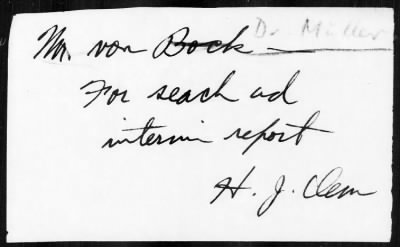 Mr. von Bock Dr Müller
For seach ad
interim report
H. J. Clem